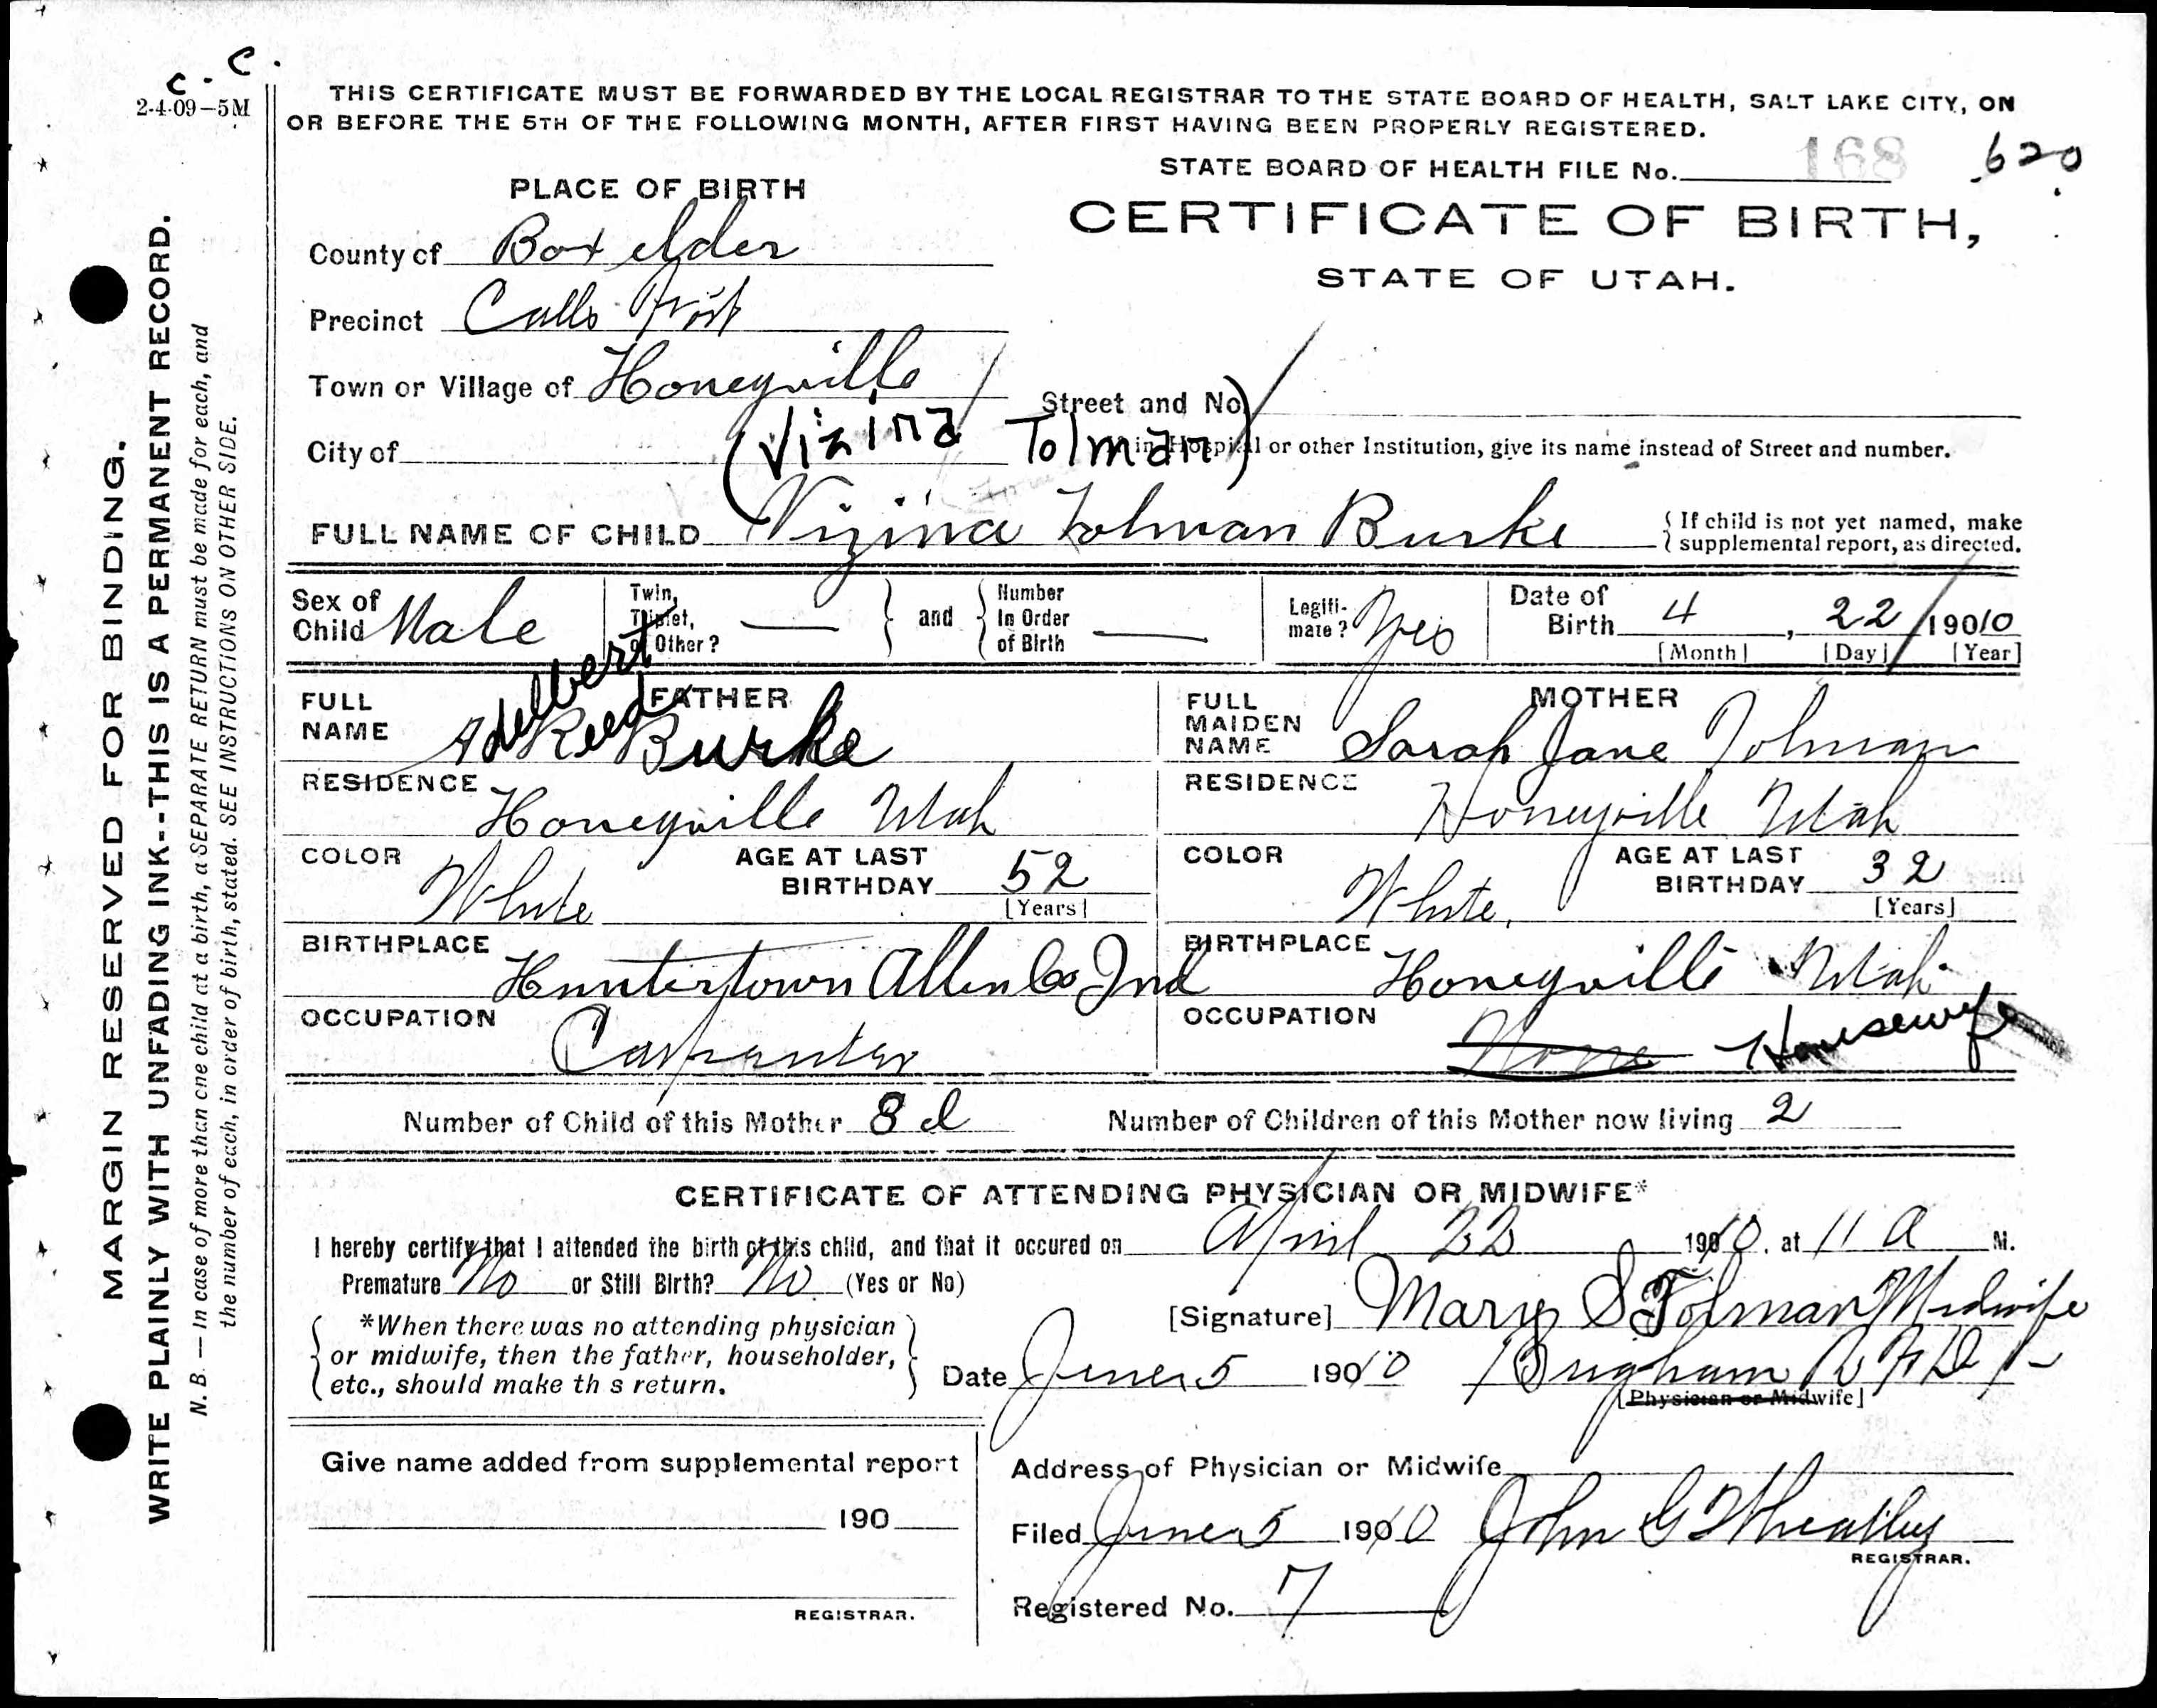 C. C.
2-4-09–5M
THIS CERTIFICATE MUST BE FORWARDED BY THE LOCAL REGISTRAR TO THE STATE BOARD OF HEALTH, SALT LAKE CITY, ON
OR BEFORE THE 5TH OF THE FOLLOWING MONTH, AFTER FIRST HAVING BEEN PROPERLY REGISTERED.
STATE BOARD OF HEALTH FILE No. 168 620
PLACE OF BIRTH
CERTIFICATE OF BIRTH,
STATE OF UTAH.
County of Box elder
Precinct Calls Fort
Town or Village of Honeyville
Street and No.
City of
(Vizina Tolman)
in Hospital or other Institution, give its name instead of Street and number.
FULL NAME OF CHILD Vizina Tolman Burke
{ If child is not yet named, make
supplemental report, as directed.
Sex of Child Male
Twin, Triplet, or Other? —
and
Number In Order of Birth —
Legiti-mate? Yes
Date of Birth 4, 22 1910
[Month] [Day] [Year]
FATHER
FULL NAME Adelbert Reed Burke
MOTHER
FULL MAIDEN NAME Sarah Jane Tolman
RESIDENCE Honeyville Utah
RESIDENCE Honeyville Utah
COLOR White
AGE AT LAST BIRTHDAY 52 [Years]
COLOR White.
AGE AT LAST BIRTHDAY 32 [Years]
BIRTHPLACE Huntertown Allen Co Ind
BIRTHPLACE Honeyville Utah
OCCUPATION Carpenter
OCCUPATION None Housewife
Number of Child of this Mother 3 d
Number of Children of this Mother now living 2
CERTIFICATE OF ATTENDING PHYSICIAN OR MIDWIFE*
I hereby certify that I attended the birth of this child, and that it occured on April 22 1910, at 11 A M.
Premature No or Still Birth? No (Yes or No)
[Signature] Mary S Tolman Midwife
*When there was no attending physician
or midwife, then the father, householder,
etc., should make th s return.
Date June 5 1910 Brigham R F D 1
[Physician or Midwife]
Give name added from supplemental report
190
REGISTRAR.
Address of Physician or Midwife
Filed June 5 1910 John G Wheatley
REGISTRAR.
Registered No. 7
MARGIN RESERVED FOR BINDING.
WRITE PLAINLY WITH UNFADING INK--THIS IS A PERMANENT RECORD.
N. B. — In case of more than one child at a birth, a SEPARATE RETURN must be made for each, and
the number of each, in order of birth, stated. SEE INSTRUCTIONS ON OTHER SIDE.